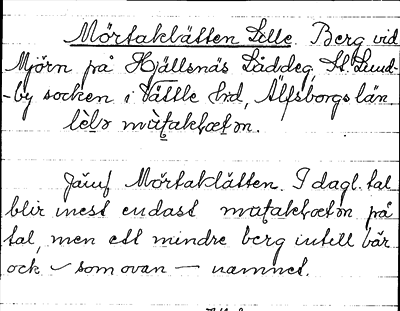 Mörtaklätten Lille. Berg vid
Mjörn på Hjällsnäs Säddeg, St. Lund-
-by socken i Vättle hd, Älfsborgs län
lèlə mùtaklætən.
Jämf Mörtaklätten. I dagl. tal
blir mest endast mùtaklætən på
tal, men ett mindre berg intill bär
ock – som ovan – namnet.